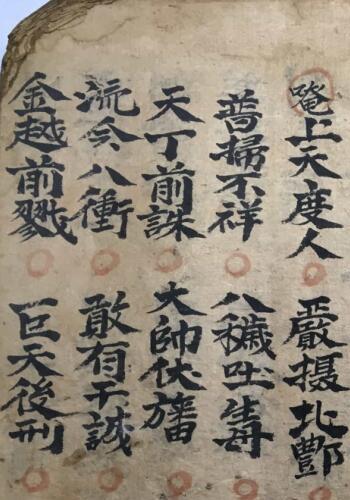 唵上天度人○嚴摄北酆
普掃不祥○八穢吐毒
天丁前誅○大帥仗旛
流令八衝○敢有干誠
金越前戮○巨天後刑